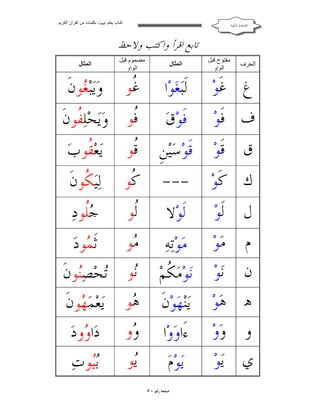 كتاب يعلم تهجئة بكلمات من القرآن الكريم
تابع اقرأ واكتب ولاحظ
الحرف مفتوح قبل الواو المثال مضموم قبل الواو المثال
غ غَوْ لَبَغَوْا غُو وَيَبْغُونَ
ف فَوْ فَوْقَ فُو وَيَحْلِفُونَ
ق قَوْ قَوْسَيْنِ قُو يَعْقُوبَ
ك كَوْ --- كُو لِيَكُونَ
ل لَوْ لَوْلَا لُو جُلُودِ
م مَوْ مَوْتِهِ مُو ثَمُودَ
ن نَوْ نَوْمَكُمْ نُو تُحْصِنُونَ
هـ هَوْ يَنْهَوْنَ هُو يَعْمَهُونَ
و وَوْ ءَاوَوْا وُو دَاوُودَ
ي يَوْ يَوْمَ يُو بُيُوتِ
صفحة رقم ٥٠